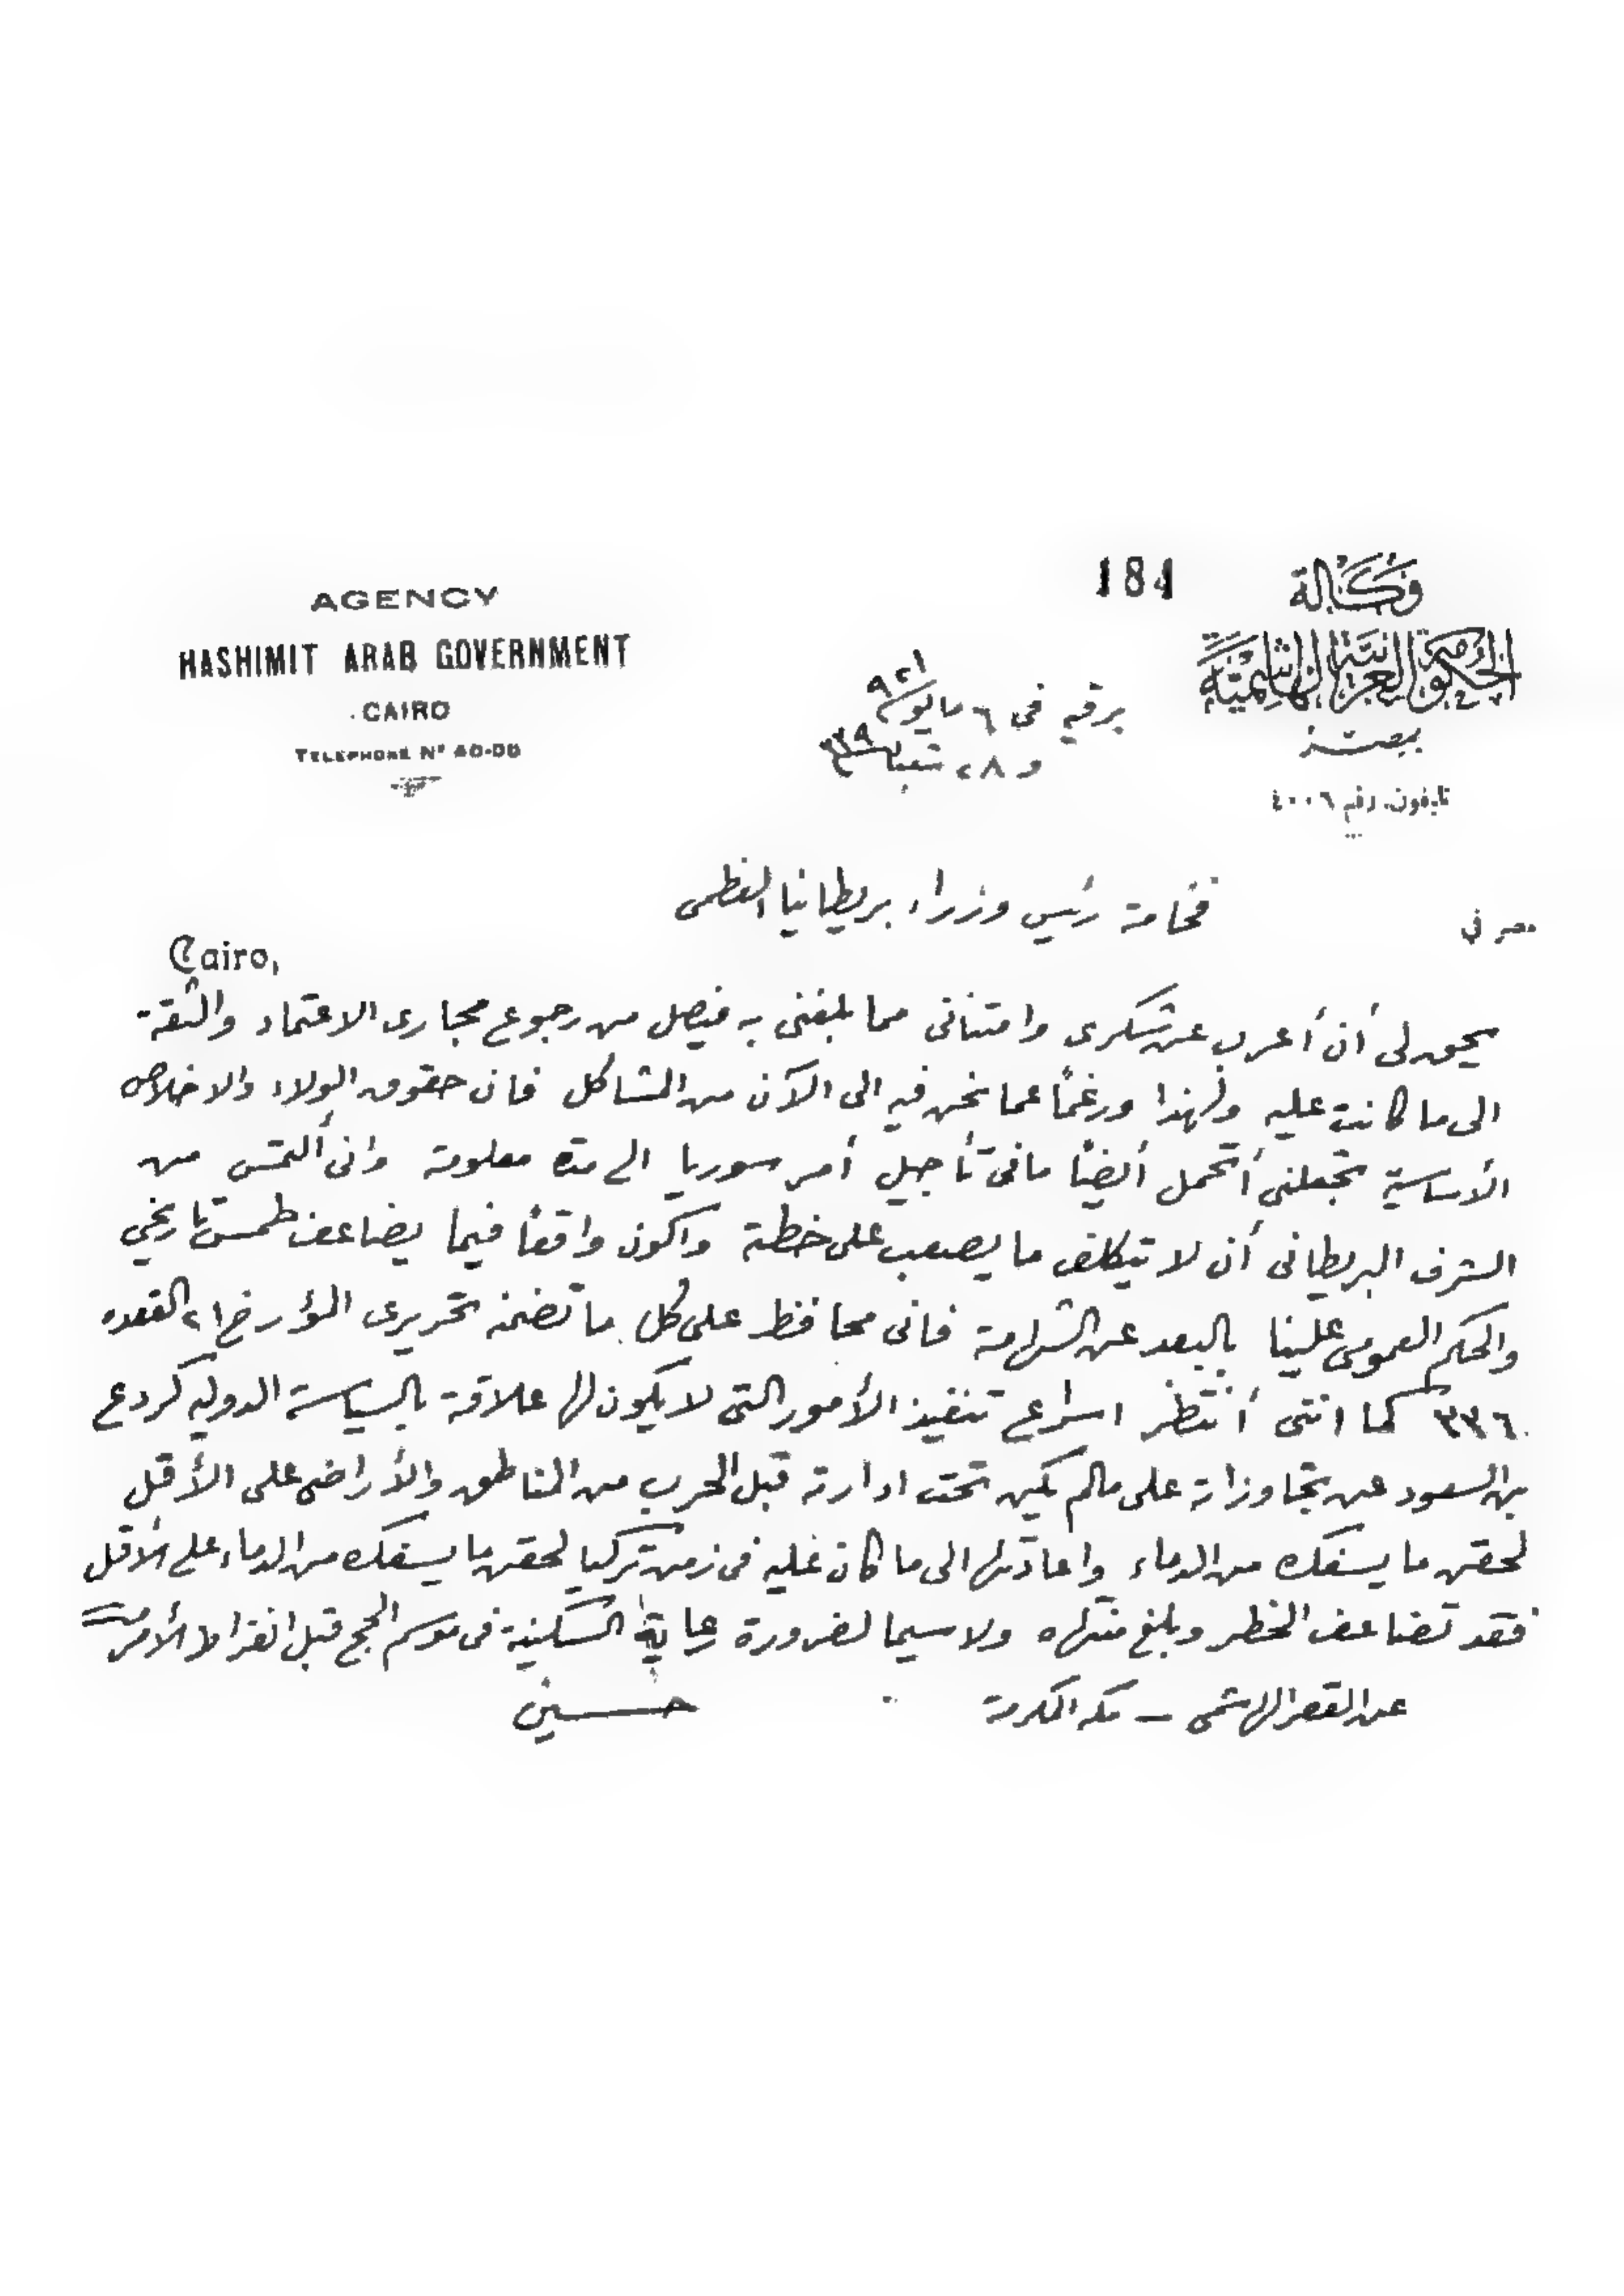 AGENCY
HASHIMIT ARAB GOVERNMENT
CAIRO
TELEPHONE Nº 40-06
184
وكالة
الحكومة العربية الهاشمية
بمصر
تليفون رقم ٤٠٠٦
برقيه فى ٦ مايو ٩٢١
و ٢٨ شعبان ٣٣٩
مصر فى
فخامة رئيس وزراء بريطانيا العظمى
Cairo,
يحق لى أن أعرب عن شكرى وامتنانى مما بلغنى به فيصل من رجوع مجارى الاعتماد والثقة
الى ما كانت عليه ولهذا ورغمًا عما نحن فيه الى الآن من المشاكل فان حقوق الولاء والاخلاص
الأساسية تجعلنى أتحمل أيضًا مافى تأجيل أمر سوريا الى مدة معلومة وانى ألتمس من
الشرف البريطانى أن لا تتكلف ما يصعب على خطة واكون واقعًا فيما يضاعف طمس تاريخي
والحكم العمومى علينا بالبعد عن الشهامة فانى محافظ على كل ما تضمنه تحريرى المؤرخ ٢١ القعده
٣٣٦ كما اننى أنتظر اسراع تنفيذ الأمور التى لا يكون لها علاقة بالسياسة الدوليه كردع
بن السعود عن تجاوزاته على مالم يكن تحت ادارته قبل الحرب من المناطق والأراضى على الأقل
لحقن ما يسفك من الدماء واعادتها الى ما كان عليه فى زمن تركيا لحقن ما يسفك من الدماء على الأقل
فقد تضاعف الخطر وبلغ منتهاه ولاسيما لضرورة رعاية السكينة فى موسم الحج قبل انفراط الأمر
عن القصر الهاشمى – مكه المكرمة
حسين